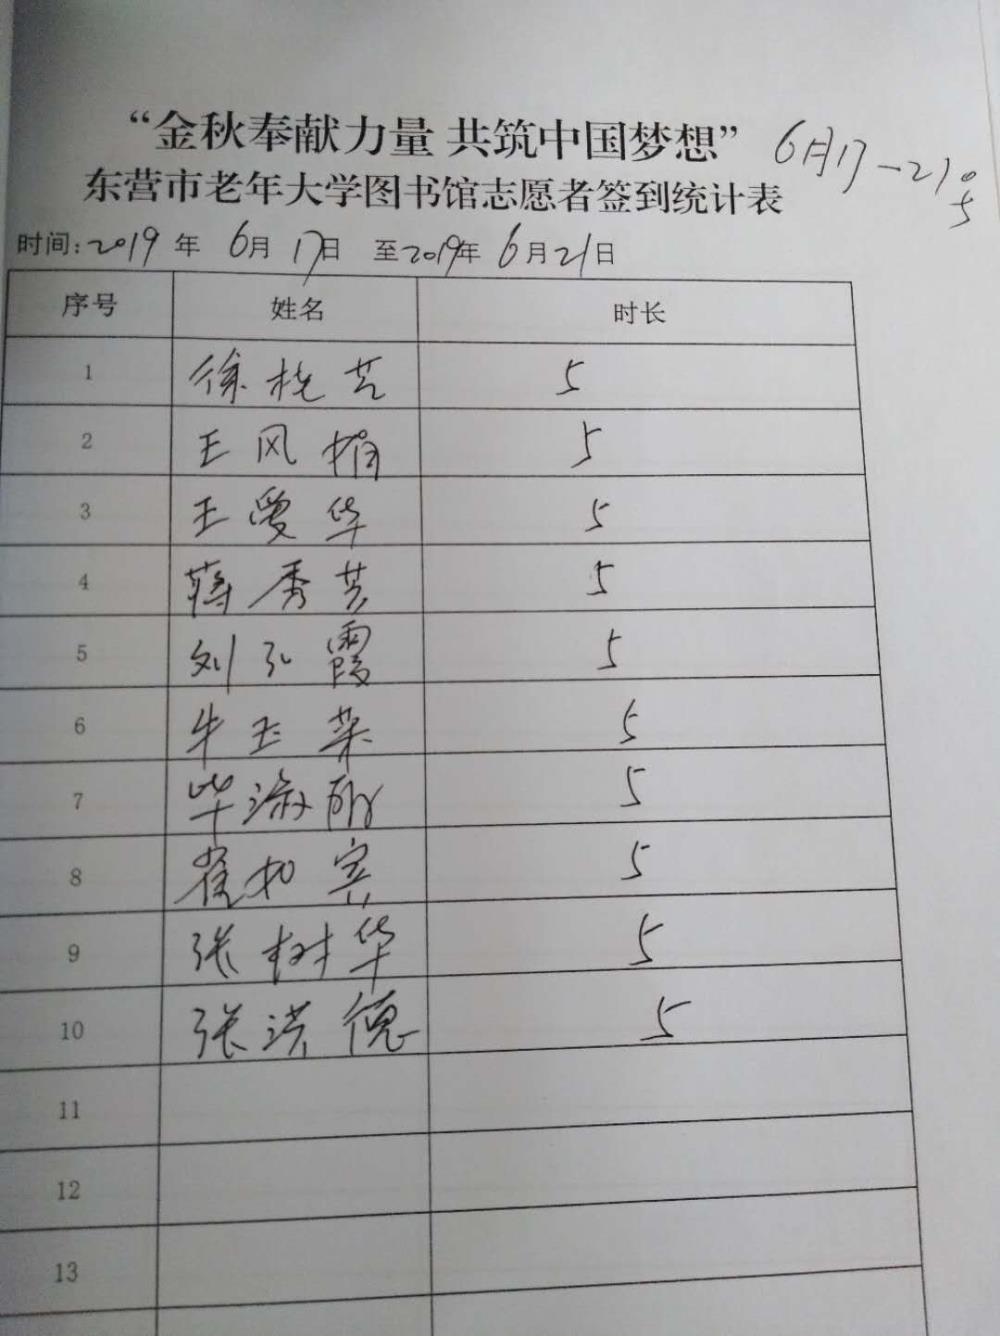 “金秋奉献力量 共筑中国梦想” 6月17-21号
东营市老年大学图书馆志愿者签到统计表
时间:2019 年 6月 17日 至2019年 6月21日
序号 姓名 时长
1 徐桂芸 5
2 王风娟 5
3 王爱华 5
4 蒋秀芸 5
5 刘弘霞 5
6 牛玉荣 5
7 毕淑 5
8 崔 5
9 张树华 5
10 张洪德 5
11
12
13